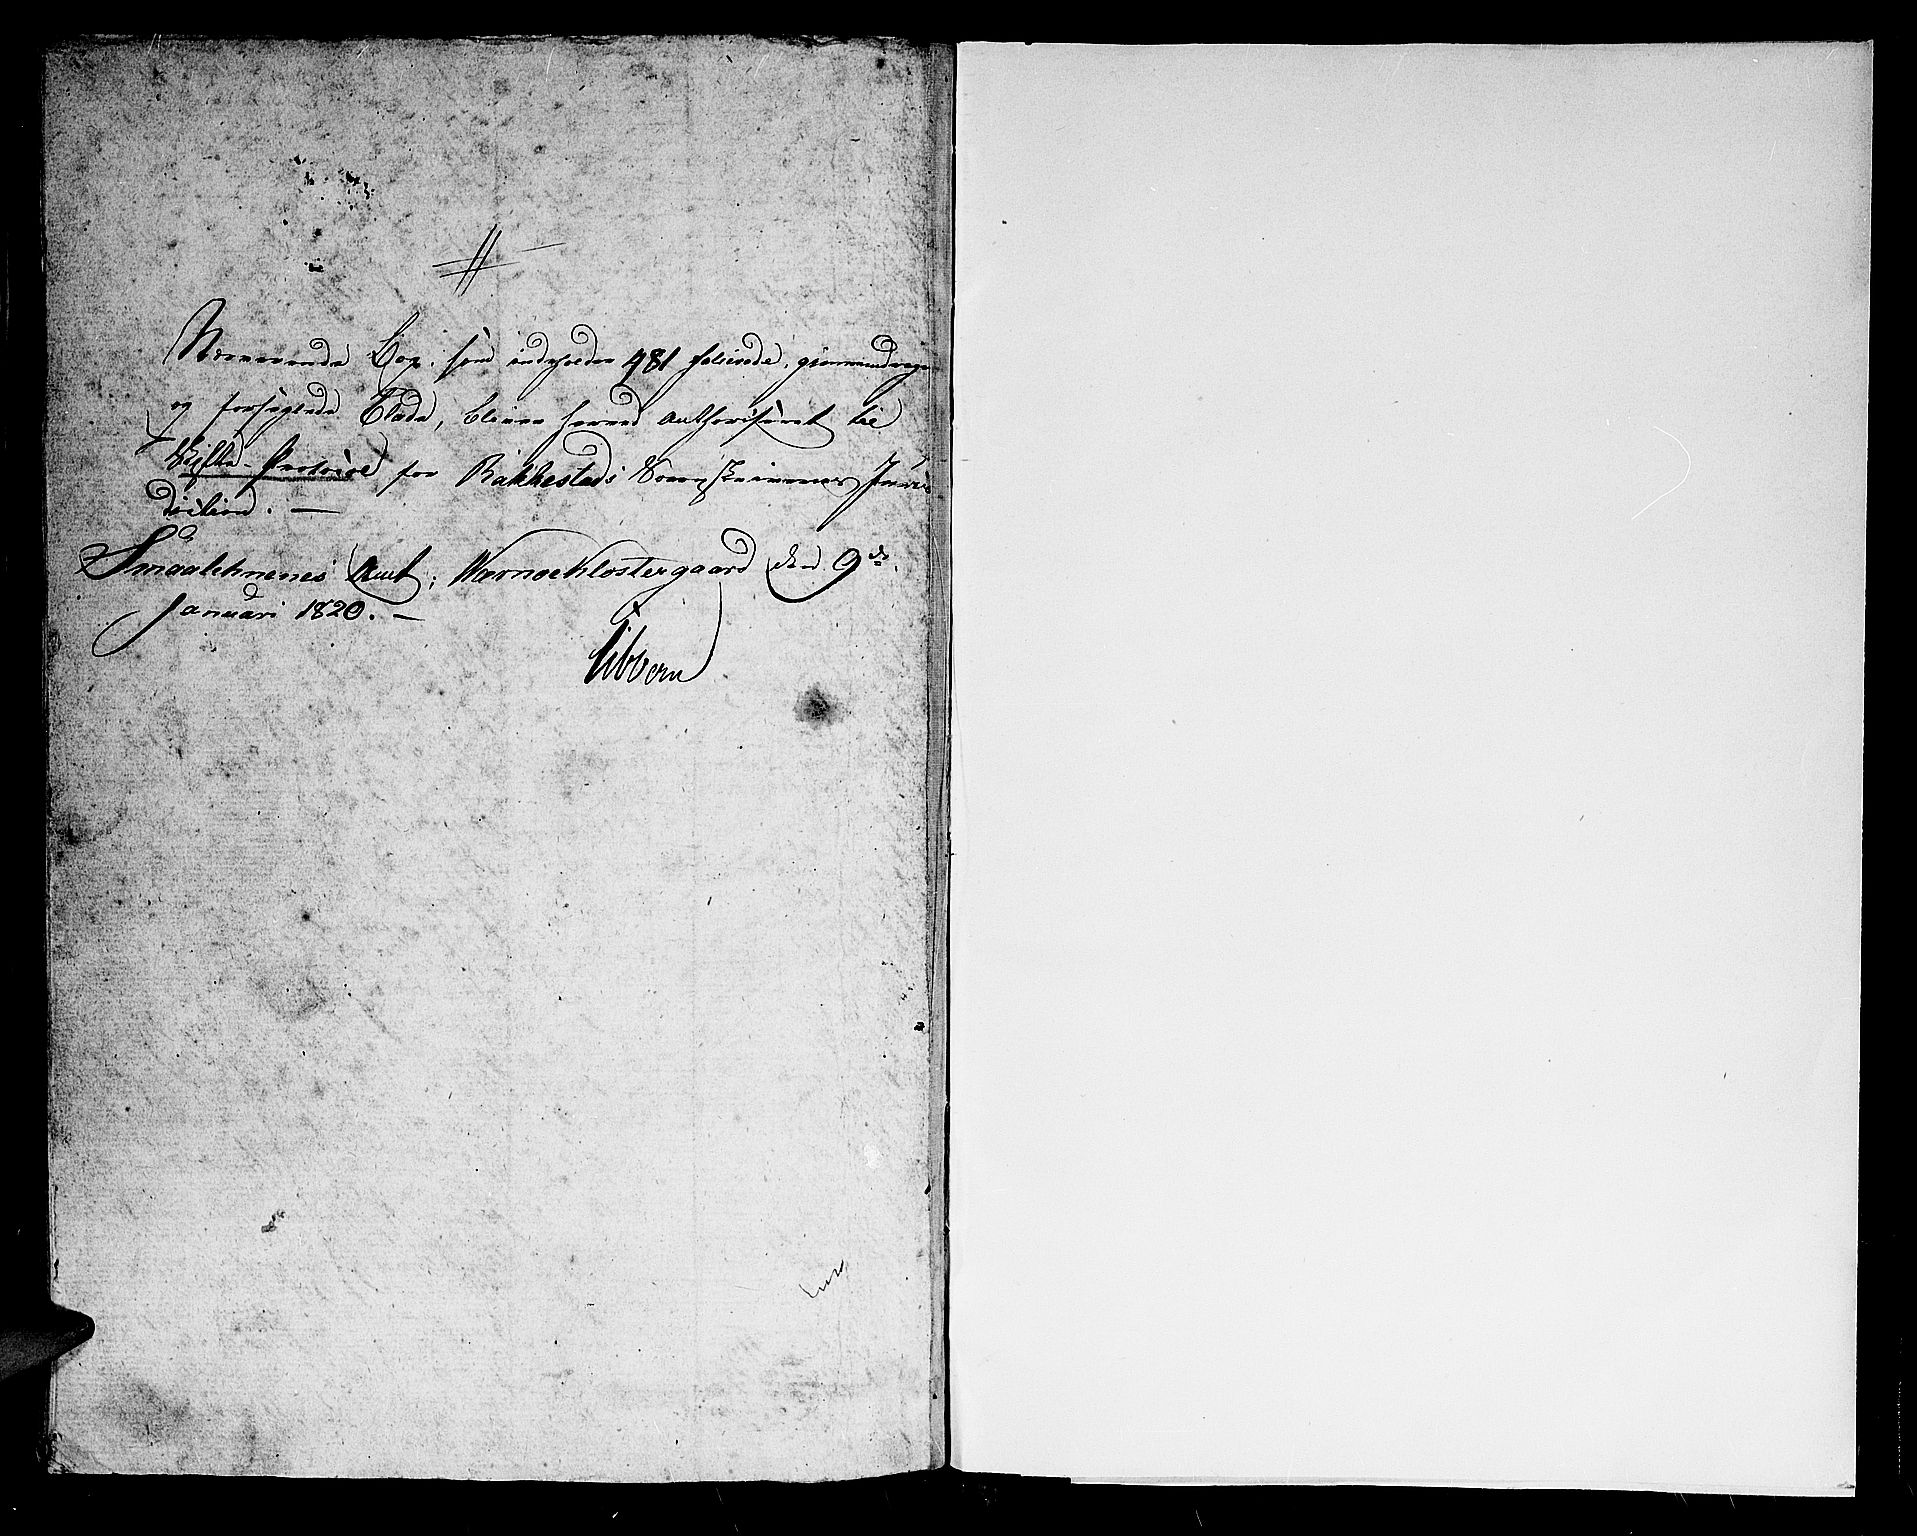 Nærværende Bog, som indeholder 481 folierede, giennemdragne
og forseglede Blade, bliver herved authoriseret til
Skifte-Protocol for Rakkestads Sorenskriveries Juris-
diction. —
Smaalehnenes Amt, Wærnøe Klostergaard den 9de
Januari 1820. —
Sibbern